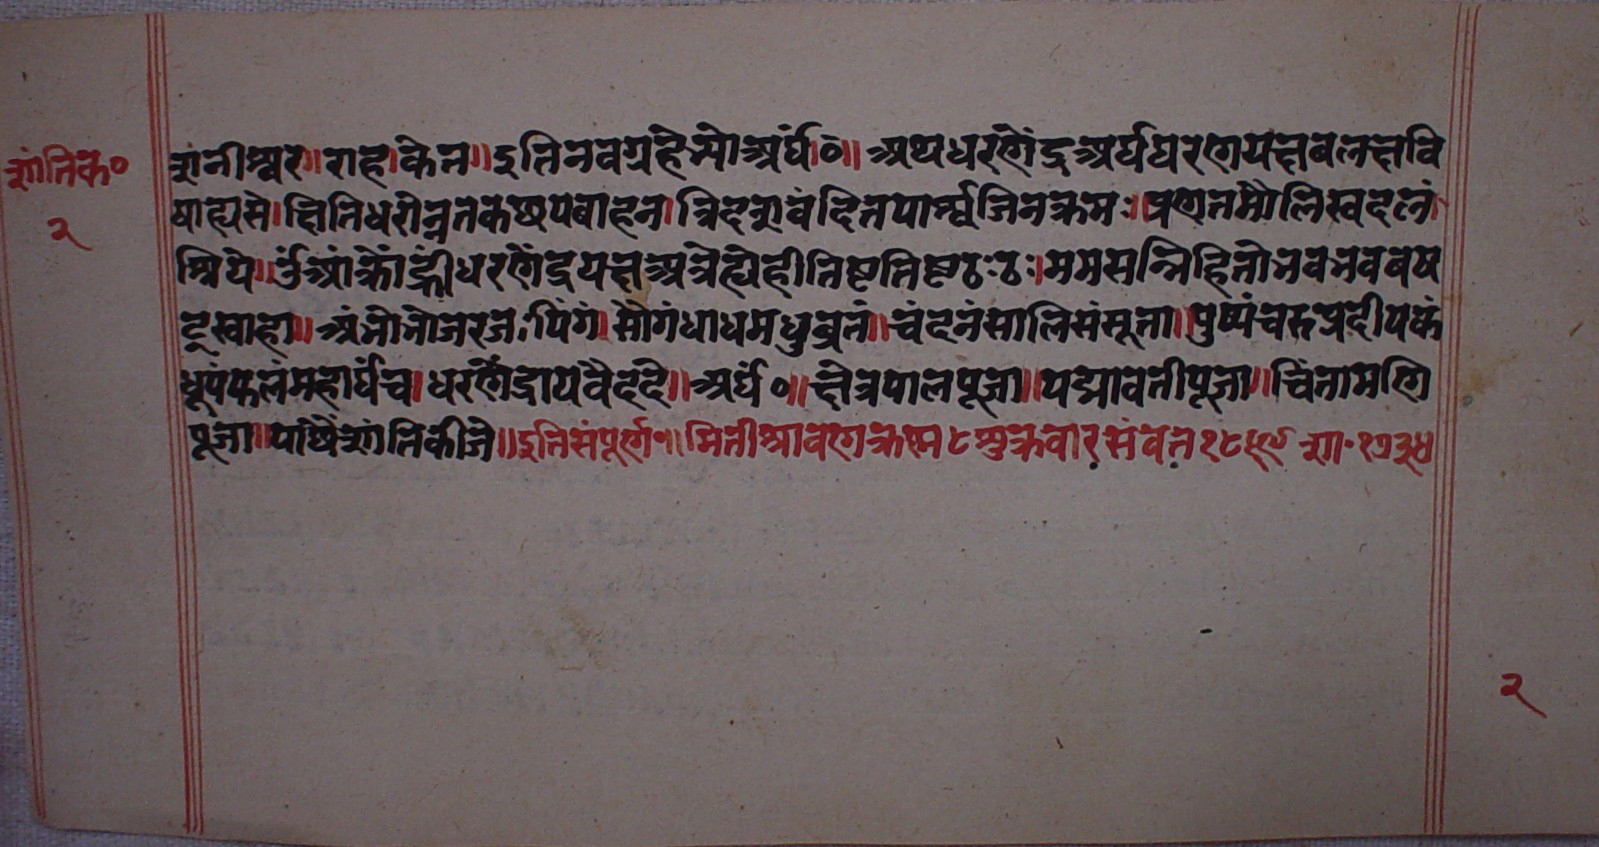 शांतिक०
२
शनीश्वर॥राह।केत॥इति नवग्रहेभ्यो अर्घं।०॥ अथ धरणेंद्र अर्घ धरणयक्षबलक्षवि
षाह्यसे।क्षितिधरोन्नतकछपबाहन।त्रिदशवंदितपार्श्वजिनक्रमः॥प्रणतमौलिस्वदलं।
श्रिये॥ उं आं क्रों ह्रीं धरणेंद्रयक्षअत्रेह्येही तिष्ट तिष्ट ठः ठः।मम सन्निहितो भव भव बष
ट् स्वाहा॥ अंभोभोजरज।पिंगं।सौगंधाधमधुव्रतं॥चंदनंसालिसंभूता॥पुष्पंचरुप्रदीपकं
धूपंफलंमहार्घंच।धरणेंद्रायवैददे॥ अर्घं०॥क्षेत्रपालपूजा॥पद्मावतीपूजा॥चिंतामणि
पूजा॥पाछैशांतिकीजै॥इतिसंपूर्ण॥ मिती श्रावण क्रस्न ८ शुक्रवार संवत
२